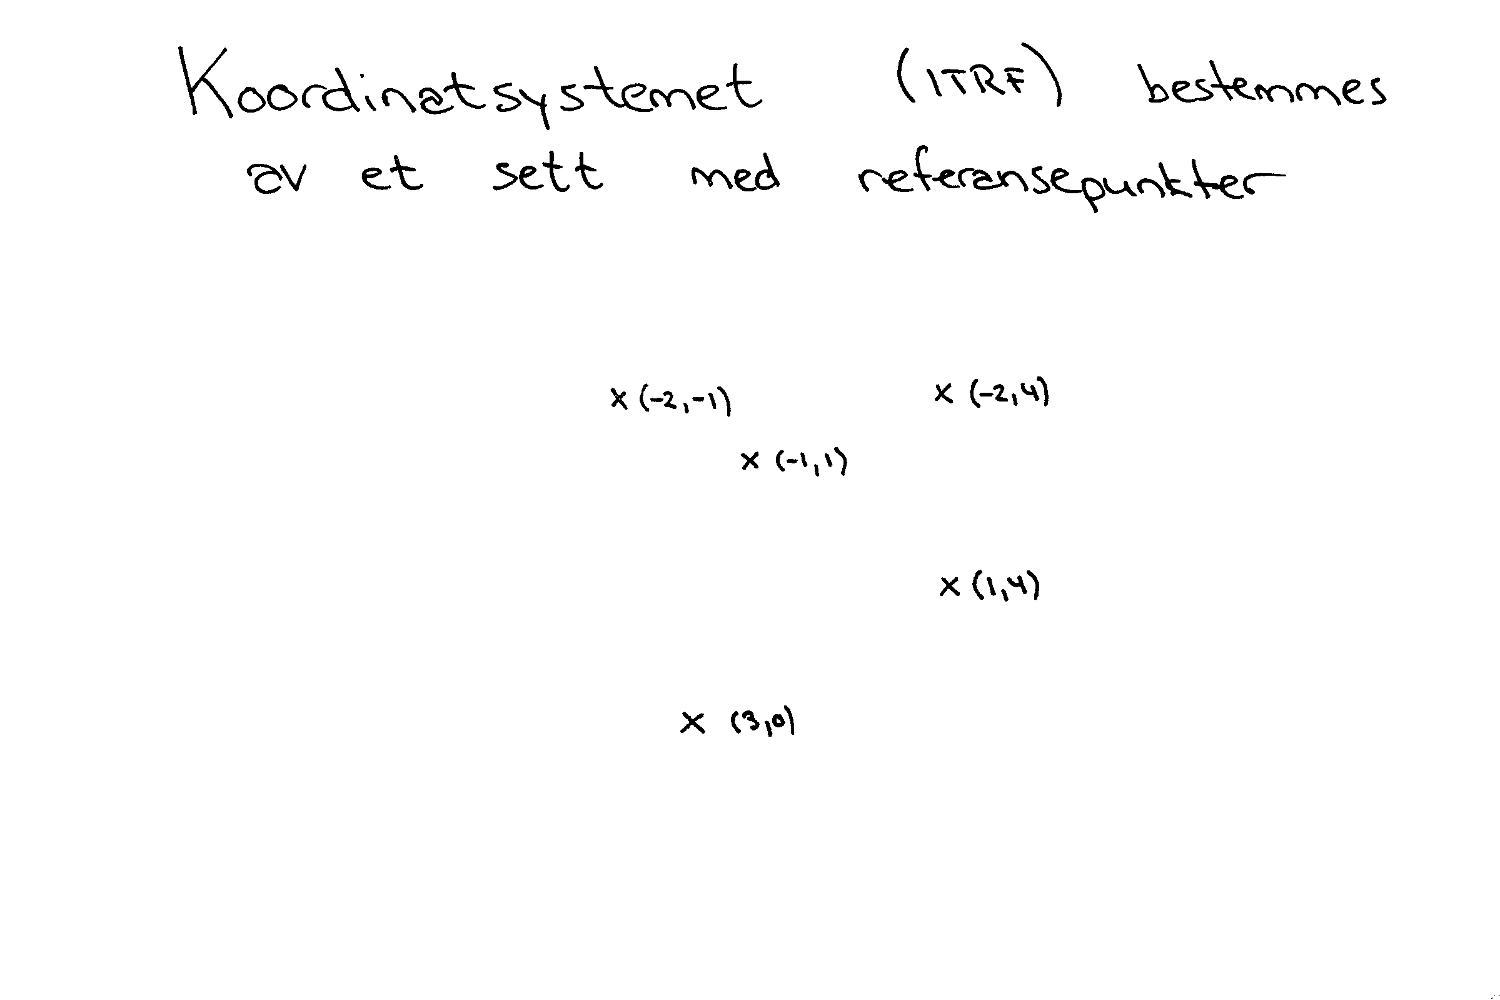 Koordinatsystemet (ITRF) bestemmes
av et sett med referansepunkter
x (-2,-1)
x (-2,4)
x (-1,1)
x (1,4)
x (3,0)